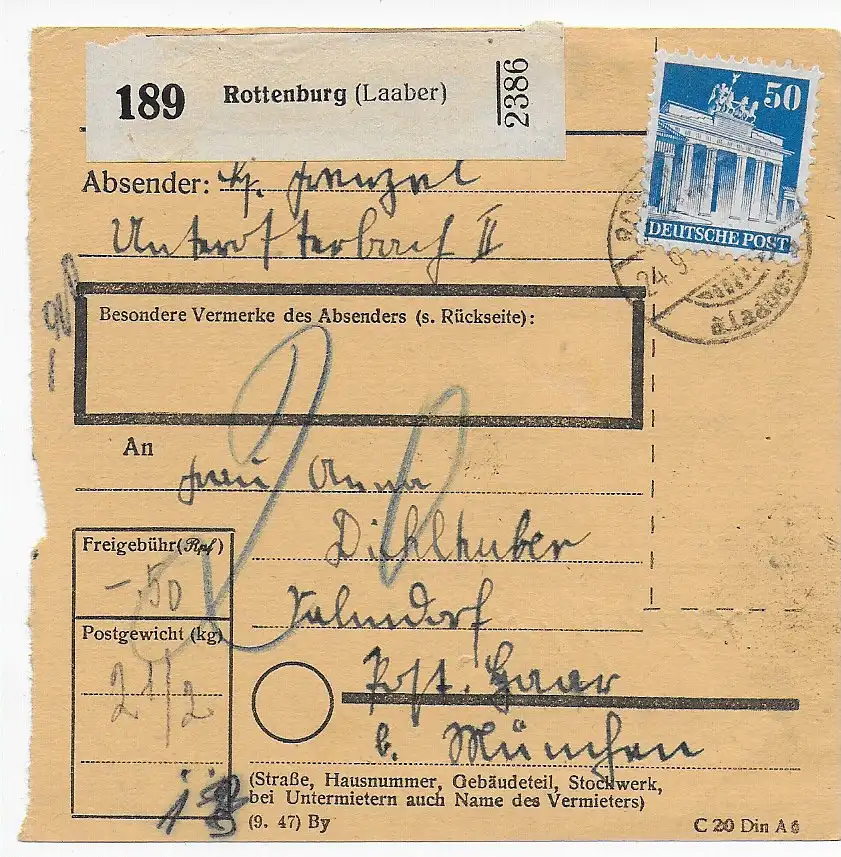 189 Rottenburg (Laaber) 2386
50
DEUTSCHE POST
Absender: Frenzel
Unterosterbach II
24.9
a Laaber
Besondere Vermerke des Absenders (s. Rückseite):
An
Frau Anna
Freigebühr (Rpf)
-,50
Dichlhuber
Postgewicht (kg)
Salmdorf
2 1/2
Post. Haar
b. München
(Straße, Hausnummer, Gebäudeteil, Stockwerk,
bei Untermietern auch Name des Vermieters)
(9. 47) By
C 20 Din A 6